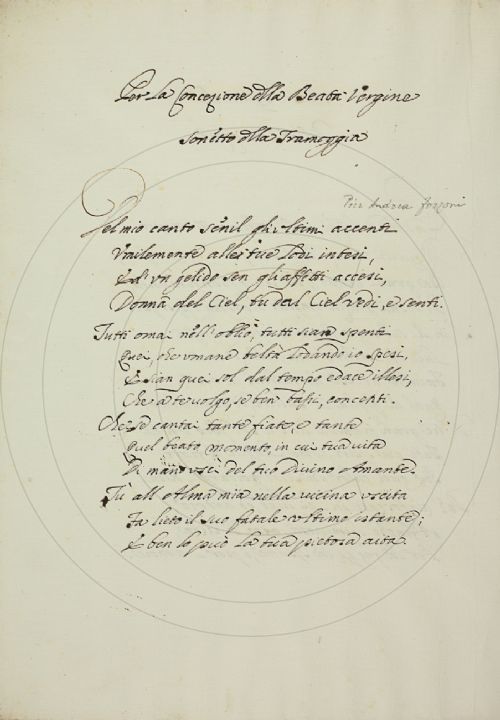 Per la Concezione della Beata Vergine
Sonetto della Tramoggia
Pier Andrea Forzoni
Del mio canto senil gli ultimi accenti
Umilemente alle tue lodi intesi,
E d'un gelido sen gli affetti accesi,
Donna del Ciel, tu dal Ciel vedi, e senti.
Tutti omai nell' obblio, tutti sian spenti
Quei, che umane beltà lodando io spesi,
E sian quei sol dal tempo edace illesi,
Che a te volgo, se ben bassi, concenti.
Che se cantai tante fiate, e tante
Quel beato momento, in cui tua vita
Di mano uscì del tuo Divino Amante.
Tu all' Alma mia nella vicina uscita
Fa lieto il suo fatale ultimo istante;
E ben lo può la tua pietosa aita.